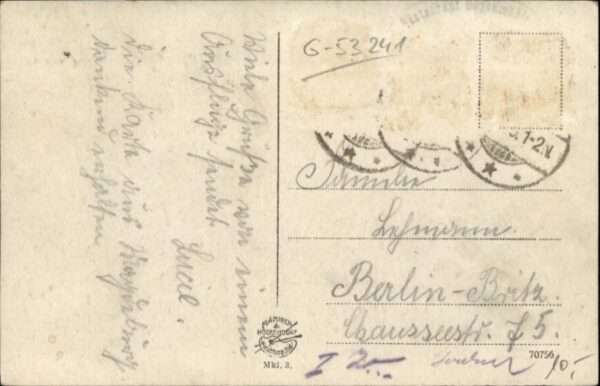 Viele Grüße von einem
Ausfluge sendet
Luciel.
Die Karte aus Magdeburg
dankend erhalten
G-53241
1-2N
Familie
Lehmann
Berlin-Britz.
Chausseestr. 75.
Mkl. 3.
70756
10.-